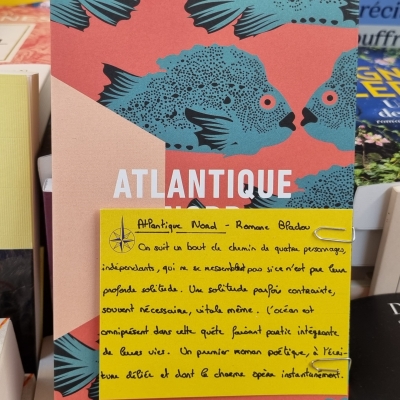 récit
ouffr
ATLANTIQUE
NORD
Atlantique Nord - Romane Bladou
On suit un bout de chemin de quatre personnages,
indépendants, qui ne se ressemblent pas si ce n'est par leur
profonde solitude. Une solitude parfois contrainte,
souvent nécessaire, vitale même. L'océan est
omniprésent dans cette quête faisant partie intégrante
de leurs vies. Un premier roman poétique, à l'écri-
ture déliée et dont le charme opère instantanément.
D